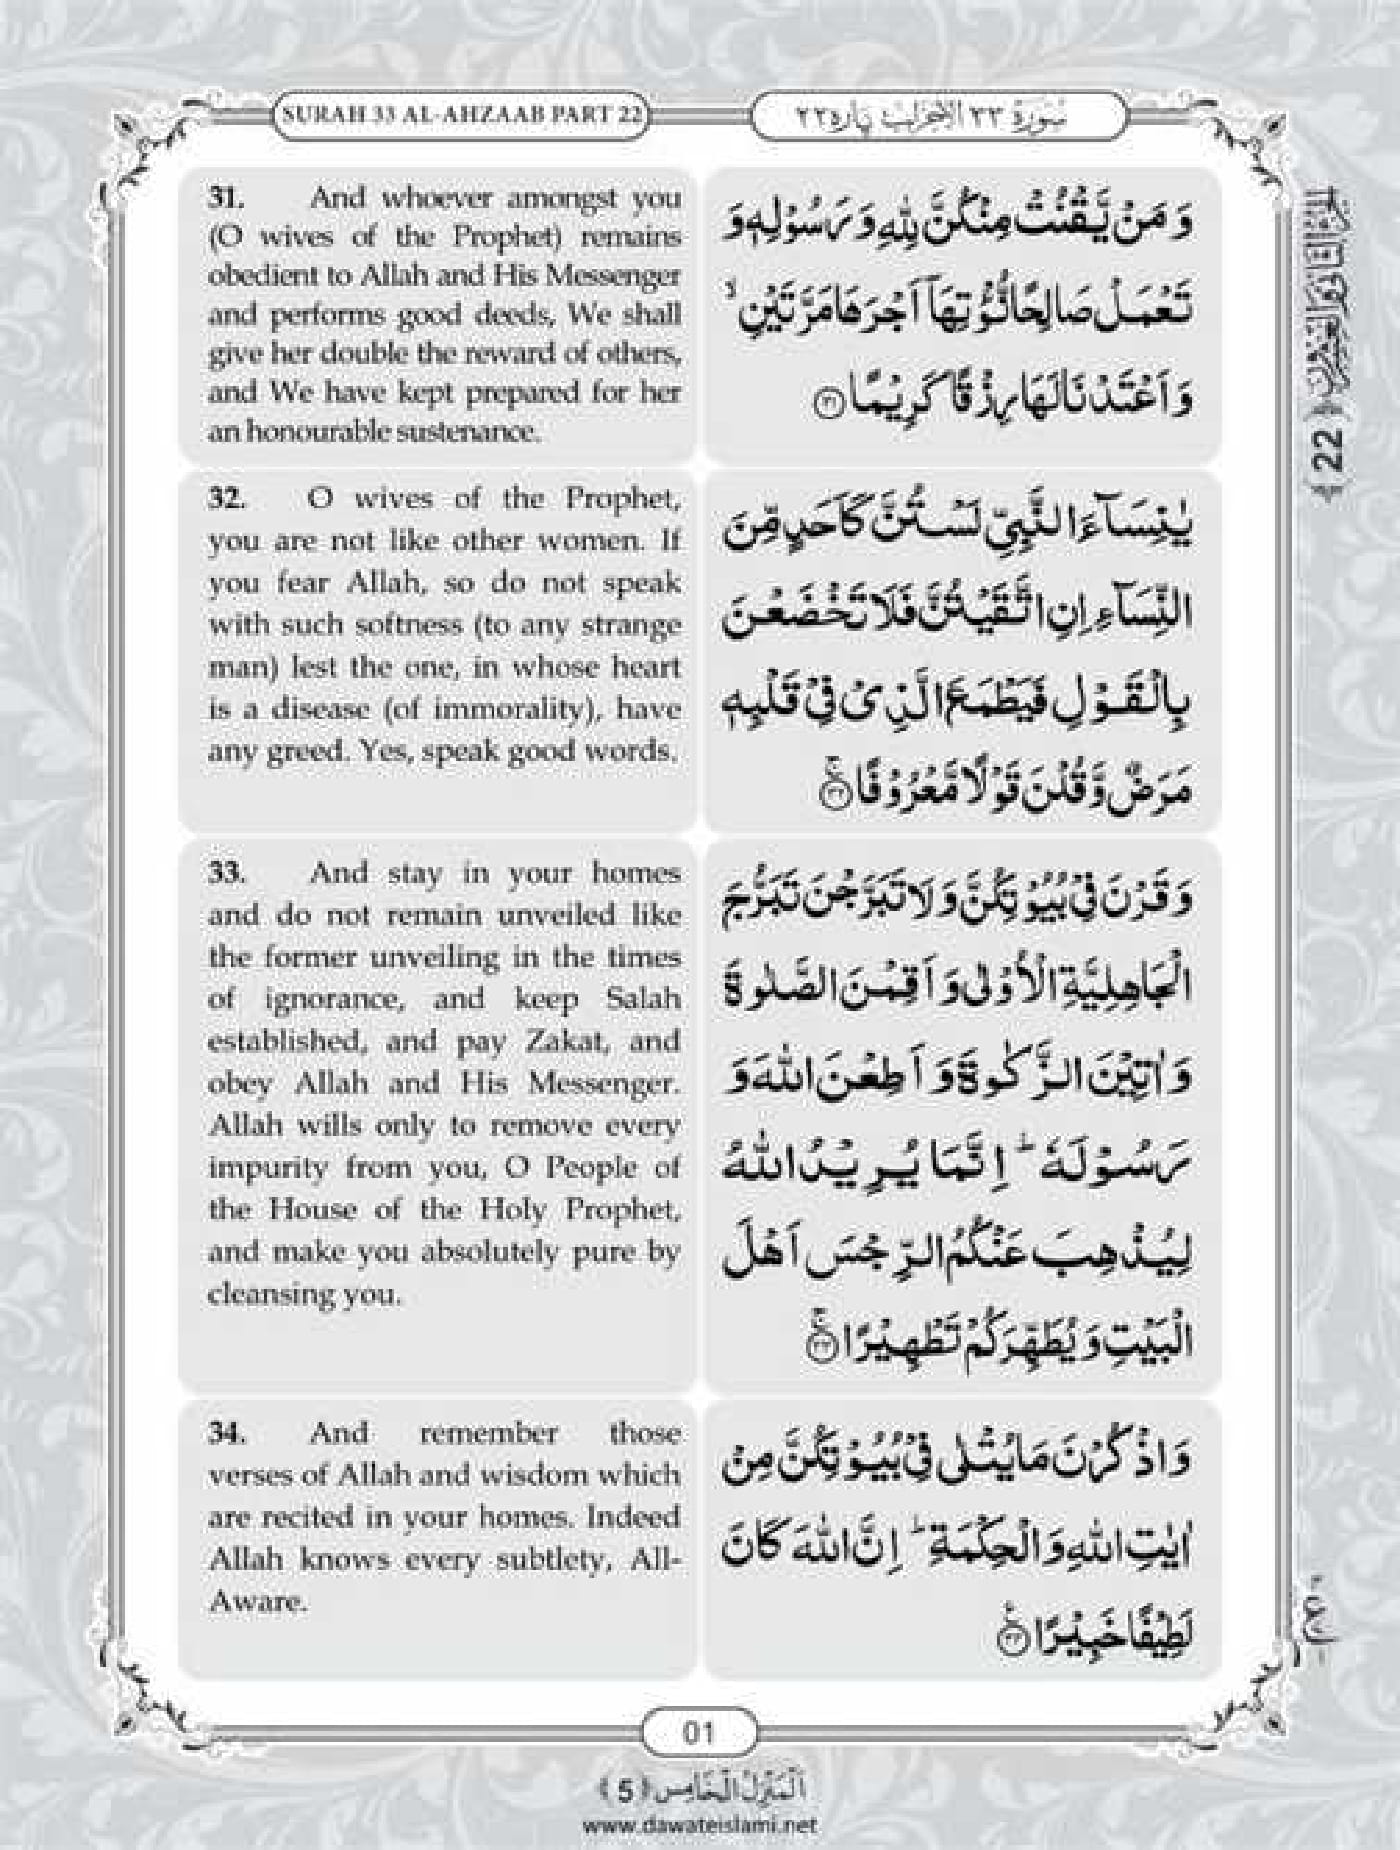 SURAH 33 AL-AHZAAB PART 22
سُوْرَةُ ٣٣ الاَحْزَاب پاره ٢٢
31. And whoever amongst you
(O wives of the Prophet) remains
obedient to Allah and His Messenger
and performs good deeds, We shall
give her double the reward of others,
and We have kept prepared for her
an honourable sustenance.
وَ مَنْ یَّقْنُتْ مِنْكُنَّ لِلّٰهِ وَ رَسُوْلِهٖ وَ
تَعْمَلْ صَالِحًا نُّؤْتِهَاۤ اَجْرَهَا مَرَّتَیْنِ ۙ
وَ اَعْتَدْنَا لَهَا رِزْقًا كَرِیْمًا ﴿۳۱﴾
32. O wives of the Prophet,
you are not like other women. If
you fear Allah, so do not speak
with such softness (to any strange
man) lest the one, in whose heart
is a disease (of immorality), have
any greed. Yes, speak good words.
یٰنِسَآءَ النَّبِیِّ لَسْتُنَّ كَاَحَدٍ مِّنَ
النِّسَآءِ اِنِ اتَّقَیْتُنَّ فَلَا تَخْضَعْنَ
بِالْقَوْلِ فَیَطْمَعَ الَّذِیْ فِیْ قَلْبِهٖ
مَرَضٌ وَّ قُلْنَ قَوْلًا مَّعْرُوْفًا ﴿۳۲﴾
33. And stay in your homes
and do not remain unveiled like
the former unveiling in the times
of ignorance, and keep Salah
established, and pay Zakat, and
obey Allah and His Messenger.
Allah wills only to remove every
impurity from you, O People of
the House of the Holy Prophet,
and make you absolutely pure by
cleansing you.
وَ قَرْنَ فِیْ بُیُوْتِكُنَّ وَ لَا تَبَرَّجْنَ تَبَرُّجَ
الْجَاهِلِیَّةِ الْاُوْلٰی وَ اَقِمْنَ الصَّلٰوةَ
وَ اٰتِیْنَ الزَّكٰوةَ وَ اَطِعْنَ اللّٰهَ وَ
رَسُوْلَهٗ ؕ اِنَّمَا یُرِیْدُ اللّٰهُ
لِیُذْهِبَ عَنْكُمُ الرِّجْسَ اَهْلَ
الْبَیْتِ وَ یُطَهِّرَكُمْ تَطْهِیْرًا ﴿۳۳﴾
34. And remember those
verses of Allah and wisdom which
are recited in your homes. Indeed
Allah knows every subtlety, All-
Aware.
وَ اذْكُرْنَ مَا یُتْلٰی فِیْ بُیُوْتِكُنَّ مِنْ
اٰیٰتِ اللّٰهِ وَ الْحِكْمَةِ ؕ اِنَّ اللّٰهَ كَانَ
لَطِیْفًا خَبِیْرًا ﴿۳۴﴾
الجزء الثاني والعشرون ﴿22﴾
01
اَلْمَنْزِلُ الْخَامِس ﴿5﴾
www.dawateislami.net